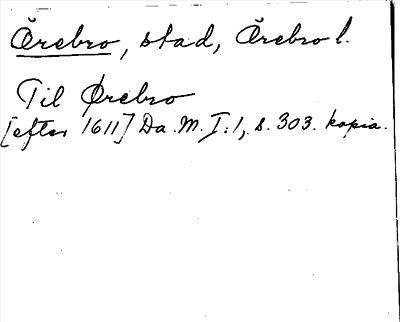 Örebro, stad, Örebro l.
Til Ørebro
[efter 1611] Da. M. I:1, s. 303. kopia.